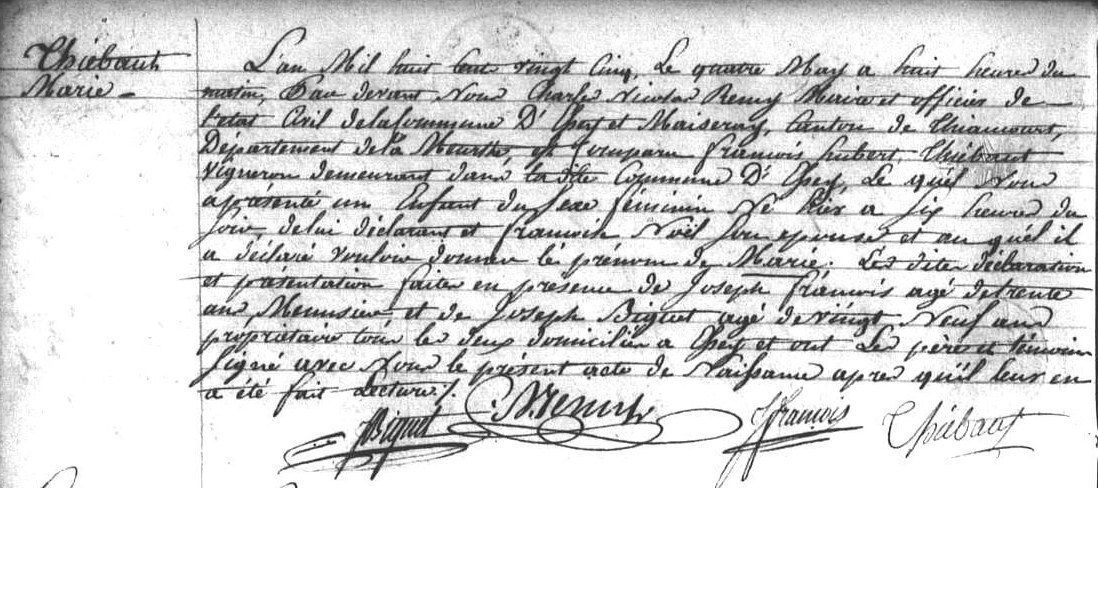 Thiébaut
Marie -
L'an Mil huit Cent vingt Cinq, Le quatre May a huit heures du
matin, Par devant Nous Charles Nicolas Remy Maire et officier de
l'etat Civil dela Commune D'Essey et Maiseray, Canton de Thiaucourt,
Département dela Meurthe est Comparu francois hubert Thiébaut
Vigneron demeurant dans la dite Commune D'Essey, Le quel Nous
a présenté un Enfant du Sexe féminin Né hier a Six heures du
Soir, de lui déclarant et francoise Noël Son epouse et au quél il
a déclaré Vouloir donner le prénom de Marie. Les dites déclaration
et présentation faites en présence de Joseph francois agé de trente
ans Menuisier et de Joseph Biguet agé de Vingt Neuf ans
propriétaire tous les deux domiciliés a Essey et ont Les père et témoins
Signé avec Nous le présent acte de Naissance apres qu'il leurs en
a été fait Lecture /.
JBiguet CNRemy JFrancois Thiébaut